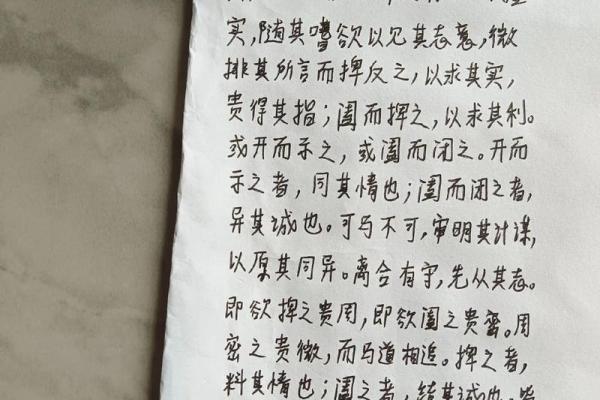 实,随其嗜欲以见其志意,微
排其所言而捭反之,以求其实,
贵得其指;阖而捭之,以求其利。
或开而示之,或阖而闭之。开而
示之者,同其情也;阖而闭之者,
异其诚也。可与不可,审明其计谋,
以原其同异。离合有守,先从其志。
即欲捭之贵周,即欲阖之贵密。周
密之贵微,而与道相追。捭之者,
料其情也;阖之者,结其诚也。皆